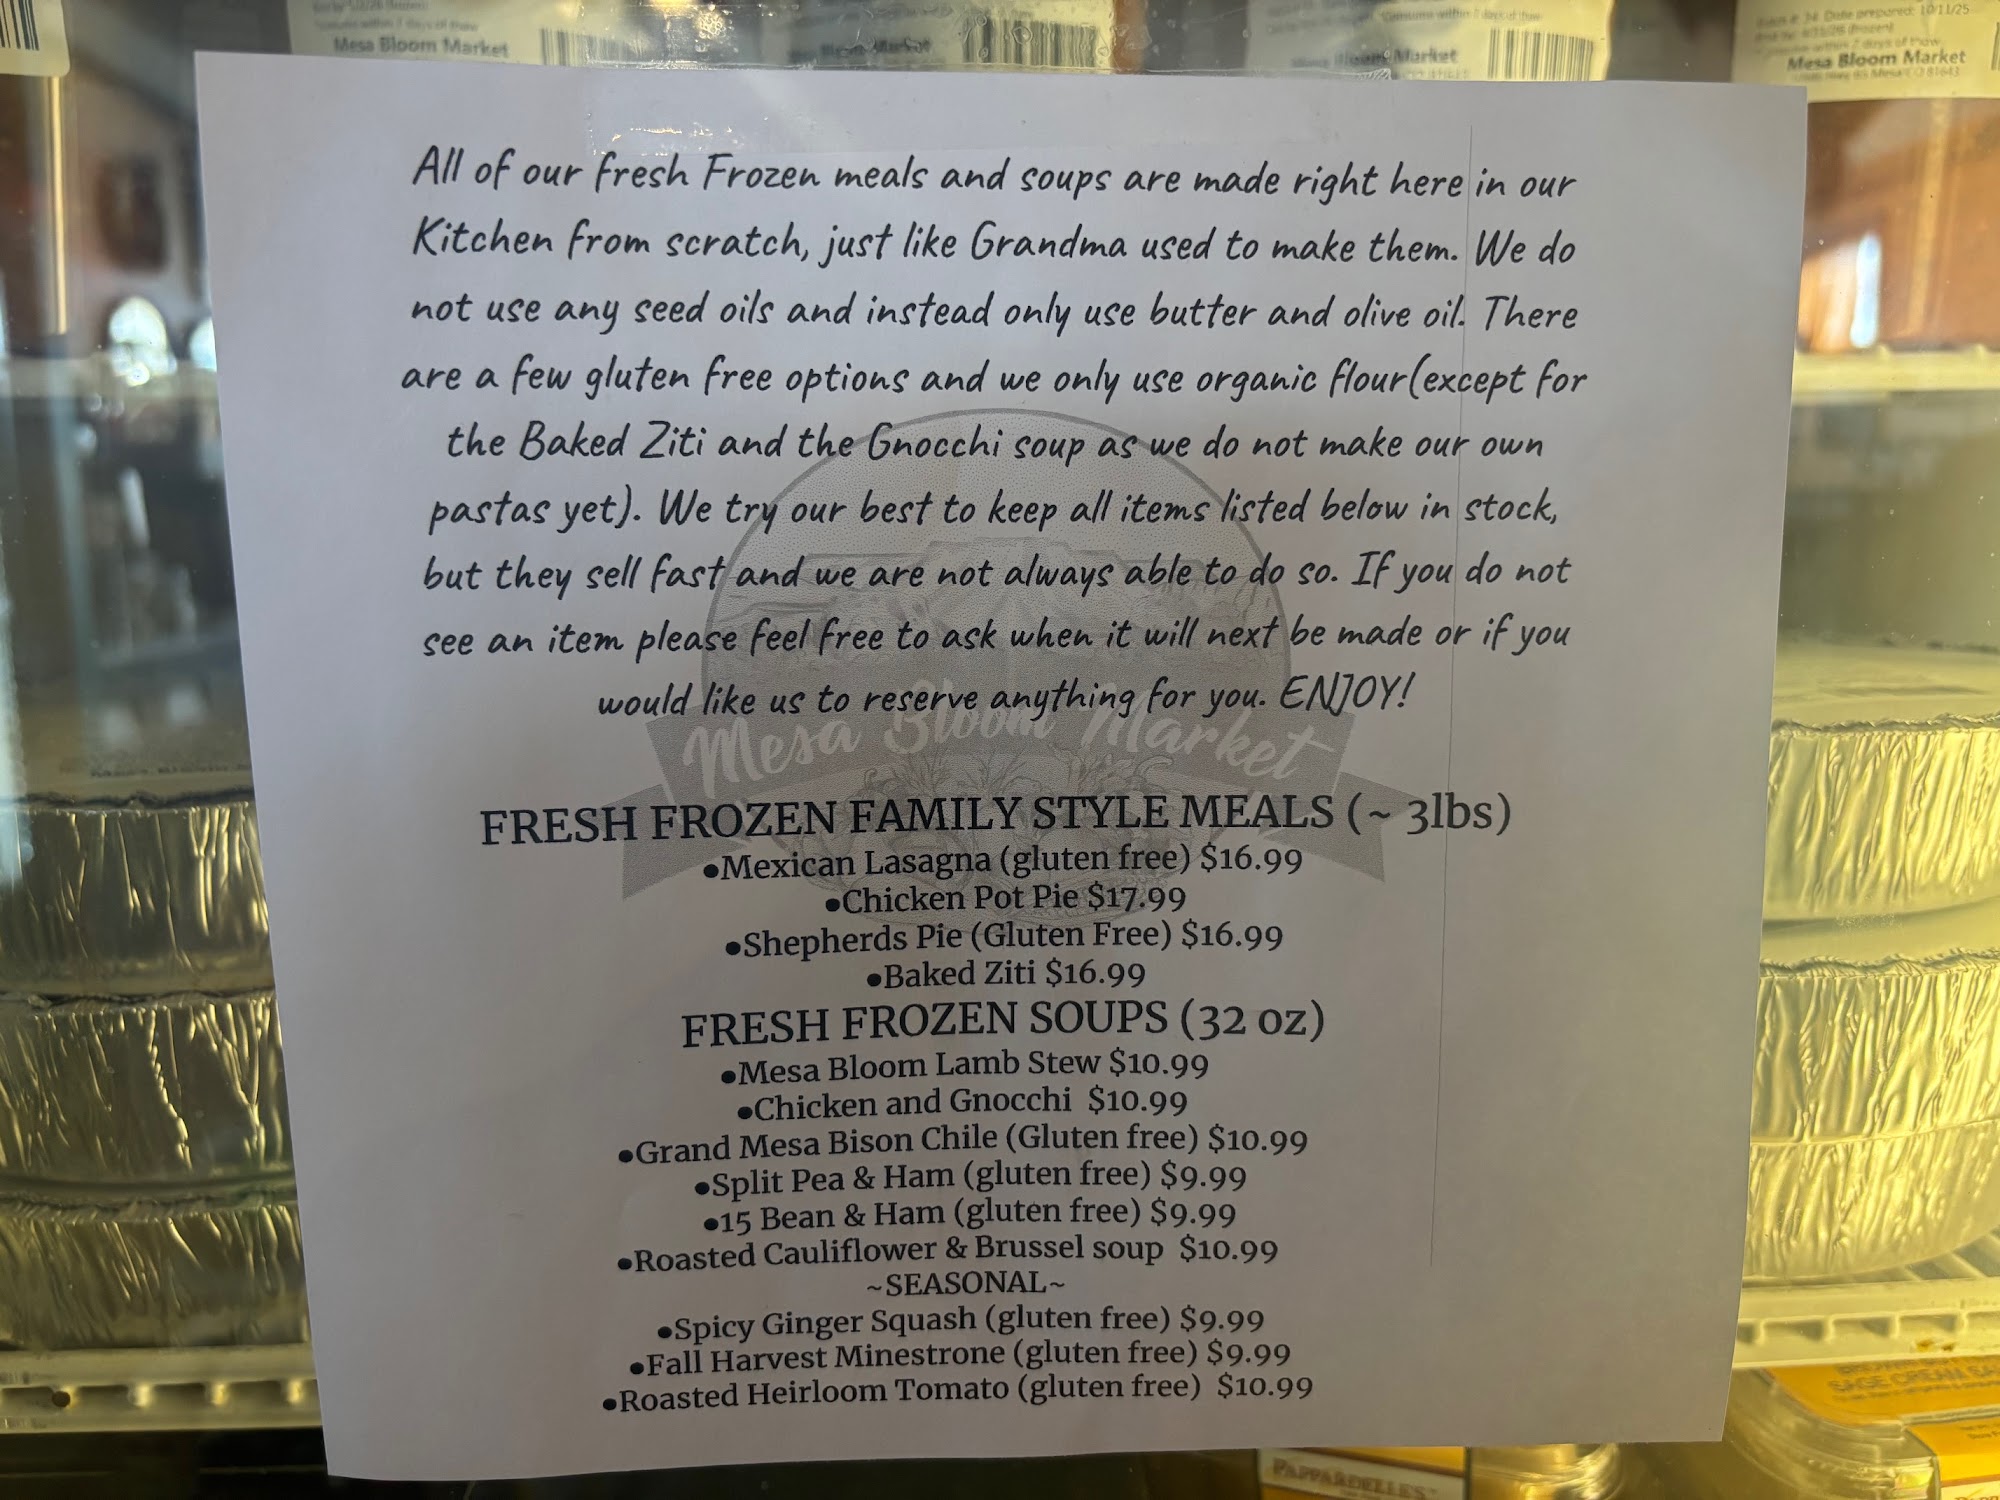 Consume within 7 days of thaw
Mesa Bloom Market
Mesa Bloom Market
Consume within 7 days of thaw
Bloom Market
Date prepared: 10/11/25
within 7 days of thaw
Mesa Bloom Market
Mesa CO 81643
All of our fresh Frozen meals and soups are made right here in our
Kitchen from scratch, just like Grandma used to make them. We do
not use any seed oils and instead only use butter and olive oil. There
are a few gluten free options and we only use organic flour(except for
the Baked Ziti and the Gnocchi soup as we do not make our own
pastas yet). We try our best to keep all items listed below in stock,
but they sell fast and we are not always able to do so. If you do not
see an item please feel free to ask when it will next be made or if you
would like us to reserve anything for you. ENJOY!
Mesa Bloom Market
FRESH FROZEN FAMILY STYLE MEALS (~ 3lbs)
•Mexican Lasagna (gluten free) $16.99
•Chicken Pot Pie $17.99
•Shepherds Pie (Gluten Free) $16.99
•Baked Ziti $16.99
FRESH FROZEN SOUPS (32 oz)
•Mesa Bloom Lamb Stew $10.99
•Chicken and Gnocchi $10.99
•Grand Mesa Bison Chile (Gluten free) $10.99
•Split Pea & Ham (gluten free) $9.99
•15 Bean & Ham (gluten free) $9.99
•Roasted Cauliflower & Brussel soup $10.99
~SEASONAL~
•Spicy Ginger Squash (gluten free) $9.99
•Fall Harvest Minestrone (gluten free) $9.99
•Roasted Heirloom Tomato (gluten free) $10.99
PAPPARDELLE'S